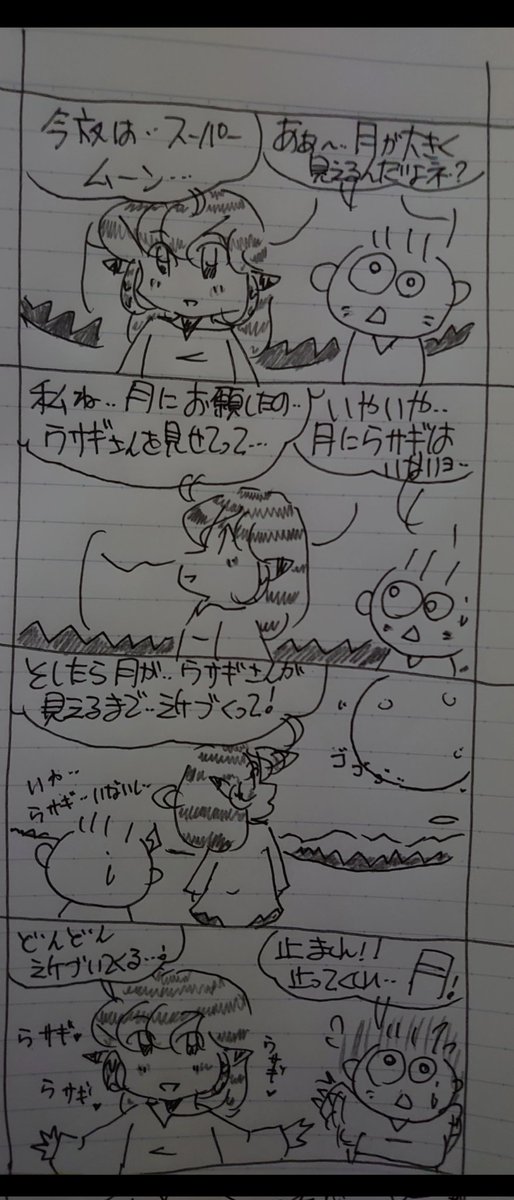 今夜は‥スーパー
ムーン…
ああ〜‥月が大きく
見えるんだよネ?
私ね‥月にお願したの‥
ウサギさんを見せてって…
いやいや‥
月にウサギは
いないヨ‥
としたら月が‥ウサギさんが
見えるまで‥近づくって!
いや‥
ウサギ‥いないし‥
ゴゴゴ…
どんどん
近づいてくる…!
止まれ!!
止ってくれ…月!
うサギ♥
うサギ♥
うサギ♥